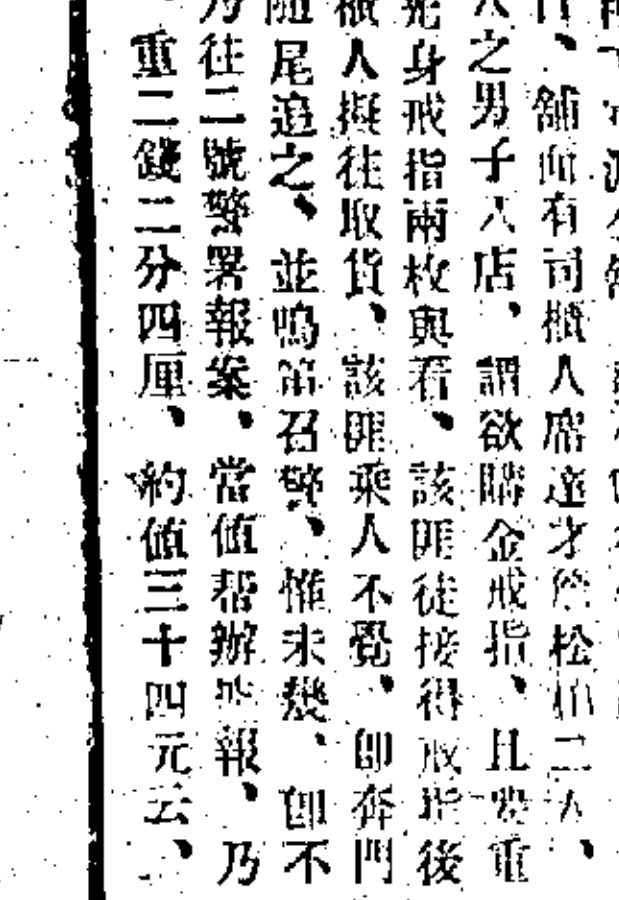 舖面有司櫃人席達才詹松柏二人、
之男子入店、謂欲購金戒指、且要重
身戒指兩枚與看、該匪徒接得戒指後
櫃人擬往取貨、該匪乘人不覺、卽奔門
隨尾追之、並鳴笛召警、惟未幾、卽不
乃往二號警署報案、當值帮辦聞報、乃
重二錢二分四厘、約值三十四元云、